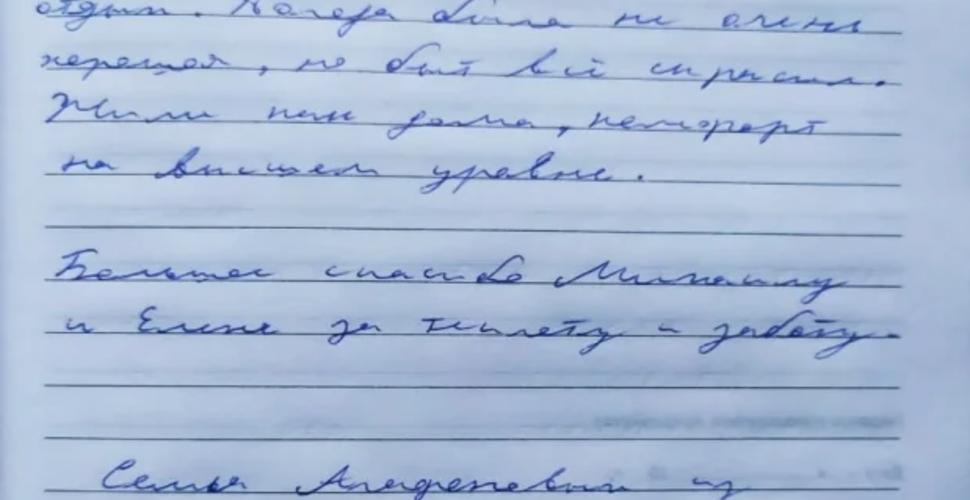 отдых. Погода была не очень
хорошая, но быт всё скрасил.
Жили как дома, комфорт
на высшем уровне.
Большое спасибо Михаилу
и Елене за теплоту и заботу.
Семья из